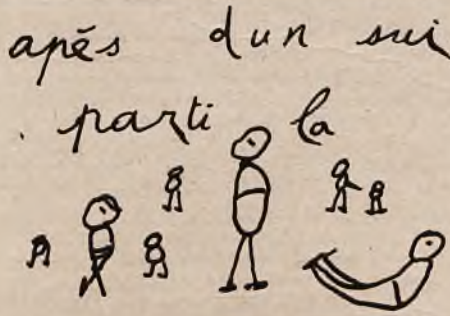 apés dun sui
. parti la